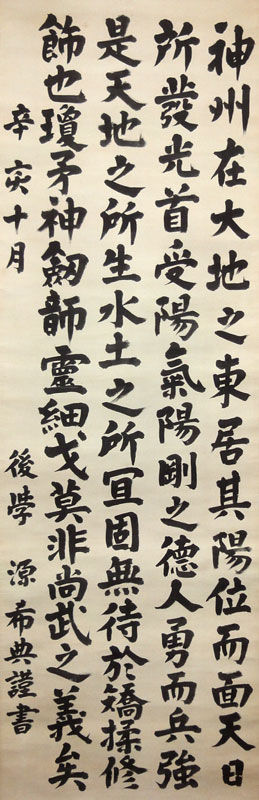 神州在大地之東居其陽位而面天日
所發光首受陽氣陽剛之德人勇而兵強
是天地之所生水土之所宜固無待於矯揉修
飾也瓊矛神劒韴靈細戈莫非尚武之義矣
辛亥十月 後學 源希典謹書